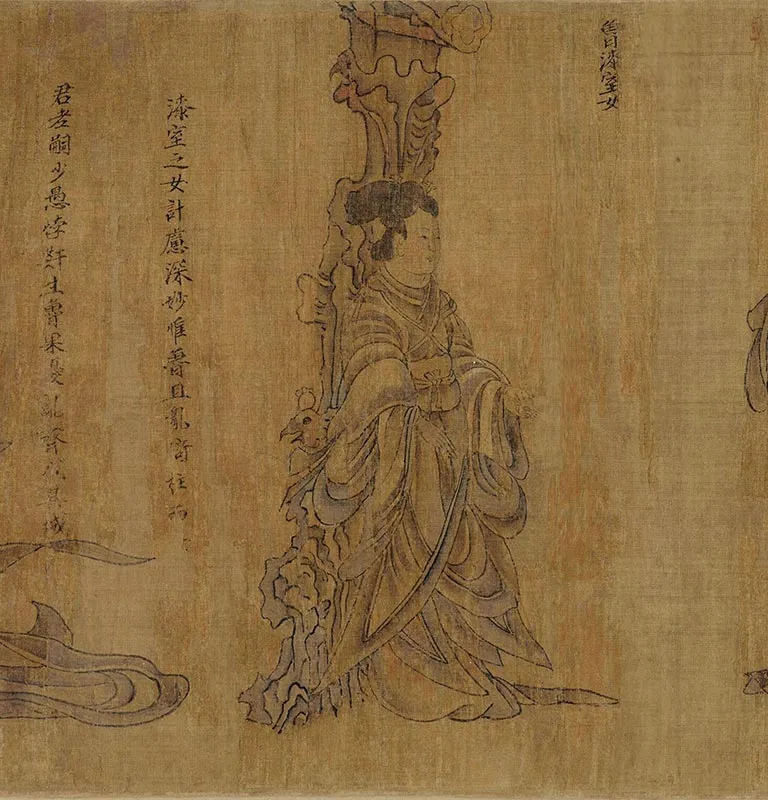 魯漆室女
漆室之女計慮深妙惟魯且亂倚柱而
君老嗣少愚悖姧生魯果擾亂齊伐其城